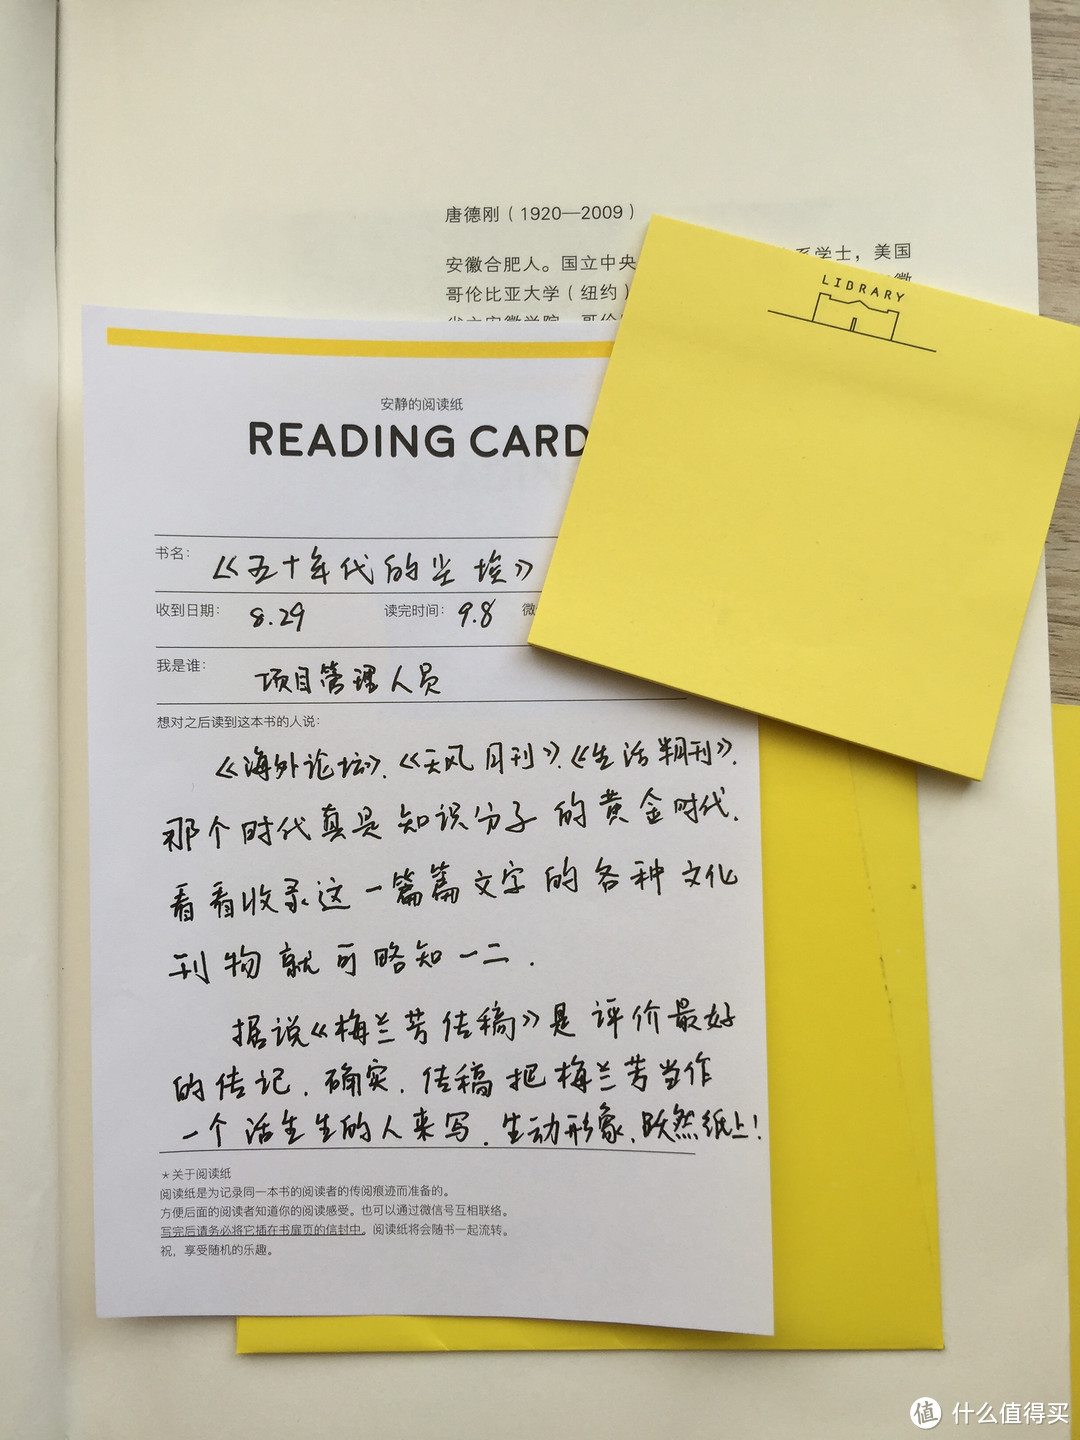 唐德刚（1920—2009）
安徽合肥人。国立中央 系学士，美国
哥伦比亚大学（纽约）
LIBRARY
安静的阅读纸
READING CARD
书名：《五十年代的尘埃》
收到日期： 8.29 读完时间： 9.8 微
我是谁： 项目管理人员
想对之后读到这本书的人说：
《海外论坛》、《天风月刊》、《生活半月刊》，
那个时代真是知识分子的黄金时代，
看看收录这一篇篇文字的各种文化
刊物就可略知一二．
据说《梅兰芳传稿》是评价最好
的传记，确实，传稿把梅兰芳当作
一个活生生的人来写，生动形象，跃然纸上！
＊关于阅读纸
阅读纸是为记录同一本书的阅读者的传阅痕迹而准备的。
方便后面的阅读者知道你的阅读感受。也可以通过微信号互相联络。
写完后请务必将它插在书扉页的信封中。阅读纸将会随书一起流转。
祝，享受随机的乐趣。
值 什么值得买